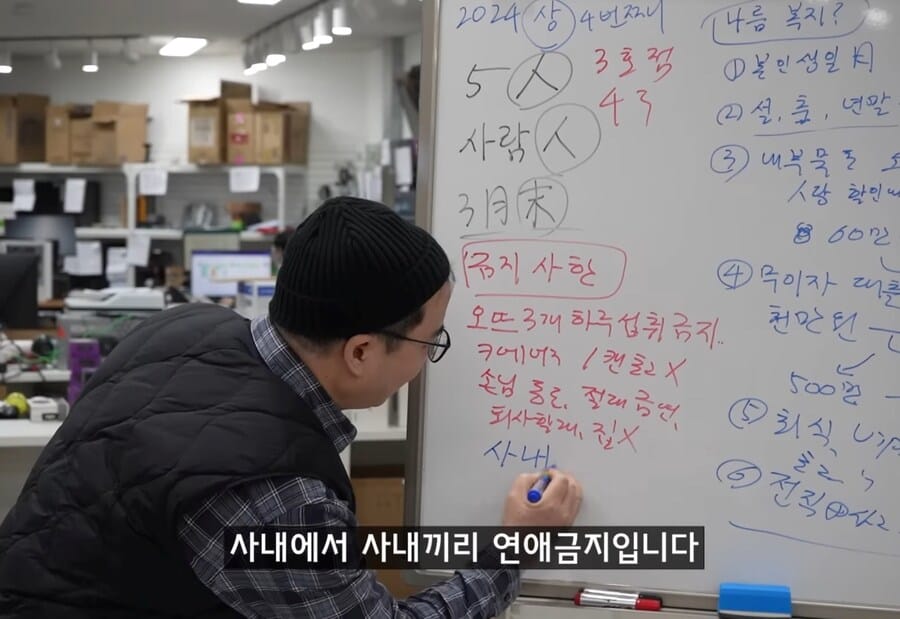 2024 상 4번째니
5人
3호점
사람人
43
3月末
금지 사항
오뜨 3개 하루 섭취 금지..
1캔 X
손님 동은, 절대 금연,
퇴사할래, 집X
사내
나름 복지?
① 본인생일
② 설, 추, 년말
③ 내부물
사랑 확인
60만
④ 무이자 대출
천만원
500만
⑤ 회식
⑥ 전직
사내에서 사내끼리 연애금지입니다